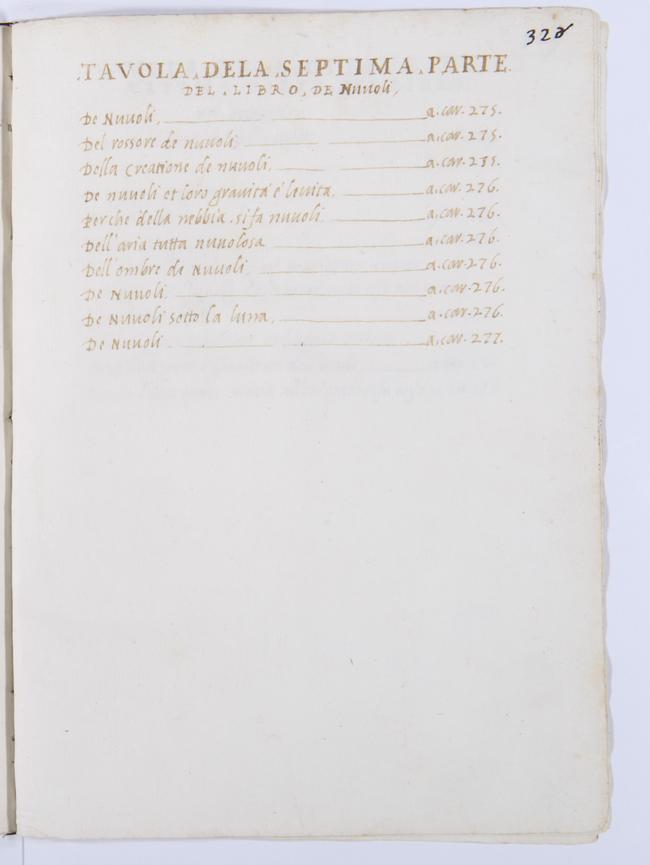 322
.TAVOLA.DELA.SEPTIMA.PARTE.
DEL.LIBRO.DE Nuuoli,
De Nuuoli, a.car.275.
Del rossore de nuuoli, a.car.275.
Della Creatione de nuuoli, a.car.275.
De nuuoli et loro gravità é levita, a.car.276.
Perche della nebbia si fa nuuoli a.car.276.
Dell'aria tutta nuuolosa a.car.276.
Dell'ombre de Nuuoli a.car.276.
De Nuuoli, a.car.276.
De Nuuoli sotto la luna, a.car.276.
De Nuuoli a.car.277.